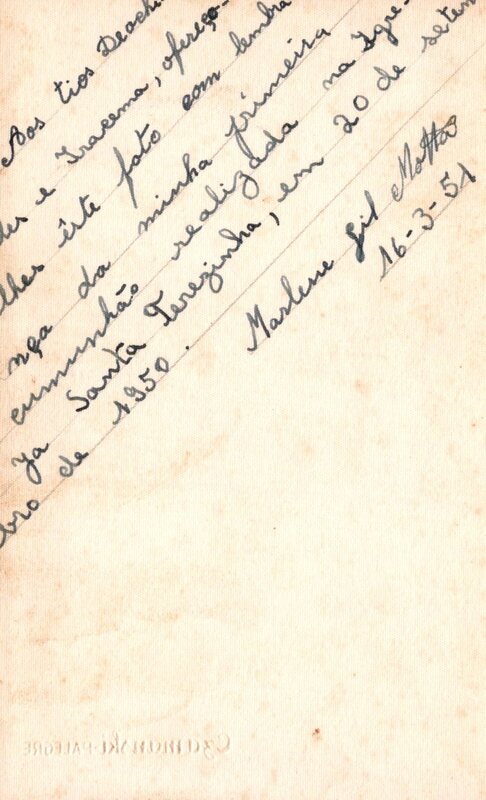 Aos tios Deocli-
des e Iracema, ofereço-
lhes êste foto com lembra
nça da minha primeira
cumunhão realizada na Igre-
ja Santa Terezinha, em 20 de setem
bro de 1950.
Marlene Gil Motta
16-3-51
Czamanski-P.ALEGRE